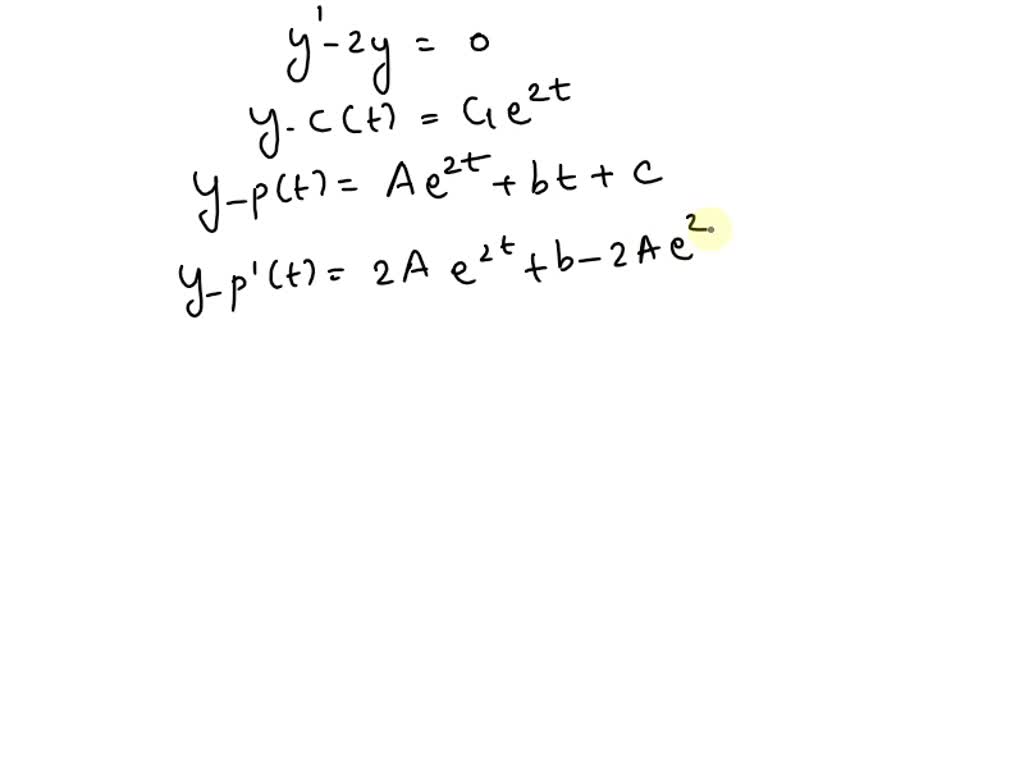 y' - 2y = 0
y-c(t) = C₁e^{2t}
y-p(t) = Ae^{2t} + bt + c
y-p'(t) = 2A e^{2t} + b - 2Ae^{2}